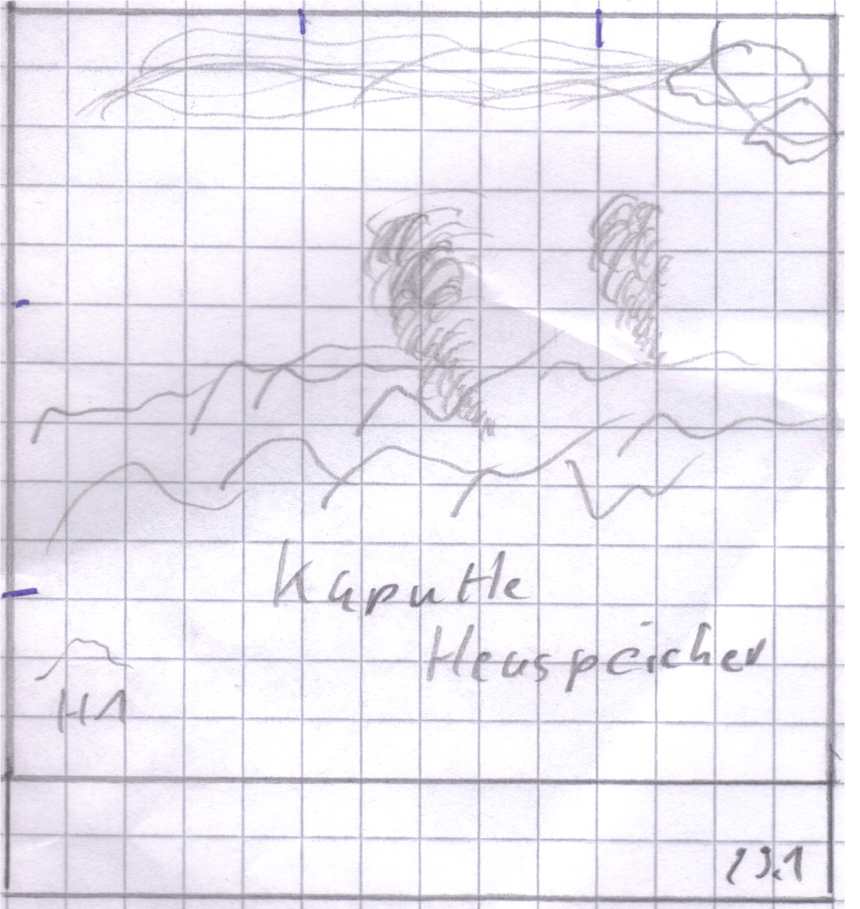 Kaputte
Heuspeicher
H1
29.1